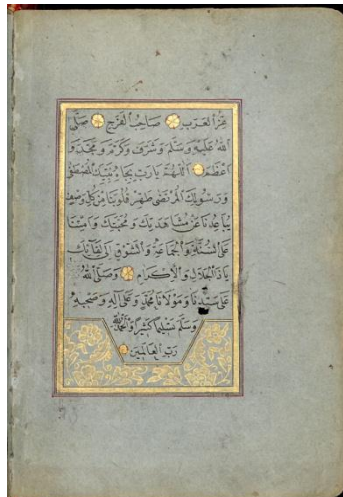 عِزُّ الْعَرَبِ صَاحِبُ الْفَرَجِ صَلَّى
اللهُ عَلَيْهِ وَسَلَّمَ وَشَرَّفَ وَكَرَّمَ وَمَجَّدَ وَ
اَعْظَمَ اَللّٰهُمَّ يَارَبِّ بِجَاهِ نَبِيِّكَ الْمُصْطَفٰى
وَرَسُولِكَ الْمُرْتَضٰى طَهِّرْ قُلُوبَنَا مِنْ كُلِّ وَصْفٍ
يُبَاعِدُنَا عَنْ مُشَاهَدَتِكَ وَمَحَبَّتِكَ وَاَمِتْنَا
عَلَى السُّنَّةِ وَالْجَمَاعَةِ وَالشَّوْقِ اِلٰى لِقَائِكَ
يَاذَا الْجَلَالِ وَالْاِكْرَامِ وَصَلَّى اللهُ
عَلٰى سَيِّدِنَا وَمَوْلَانَا مُحَمَّدٍ وَعَلٰى اٰلِهِ وَصَحْبِهِ
وَسَلَّمَ تَسْلِيمًا كَثِيرًا وَالْحَمْدُ لِلّٰهِ
رَبِّ الْعَالَمِينَ